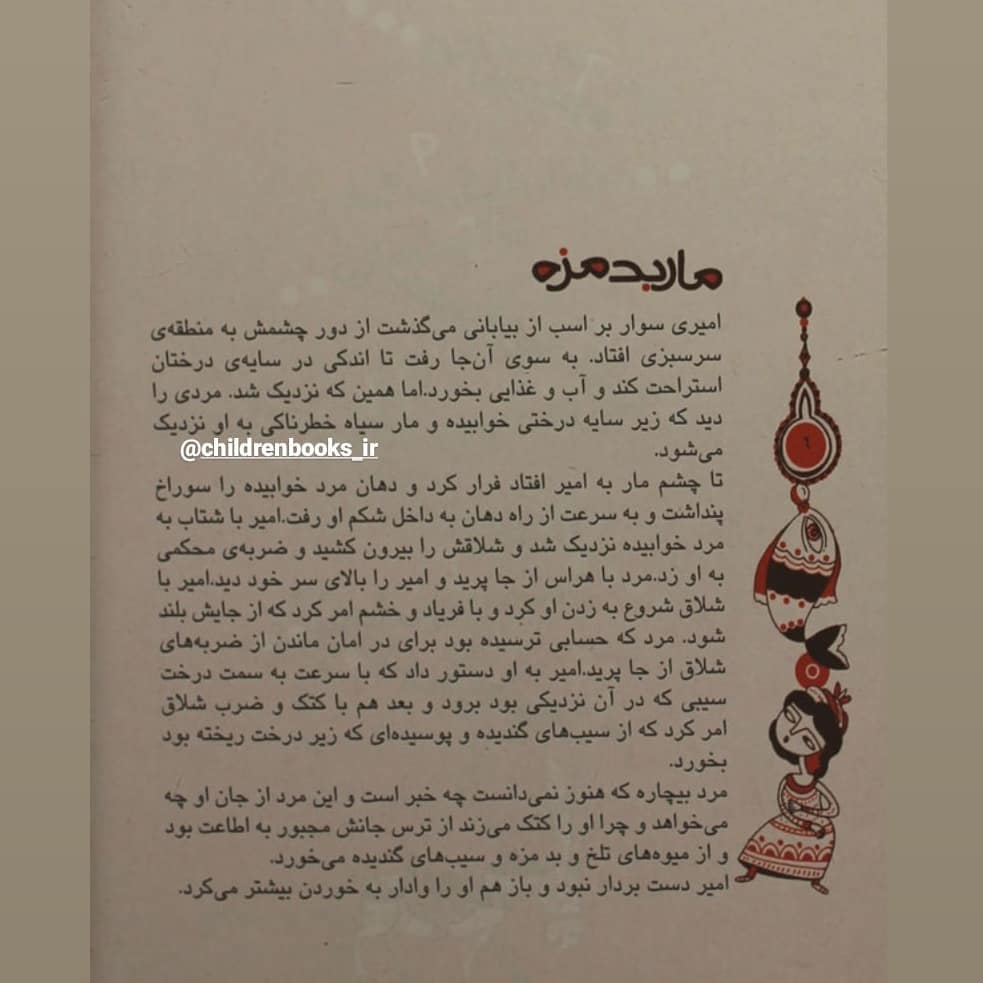 مار بد مزه
امیری سوار بر اسب از بیابانی می‌گذشت از دور چشمش به منطقه‌ی
سرسبزی افتاد. به سوی آن‌جا رفت تا اندکی در سایه‌ی درختان
استراحت کند و آب و غذایی بخورد.اما همین که نزدیک شد. مردی را
دید که زیر سایه درختی خوابیده و مار سیاه خطرناکی به او نزدیک
می‌شود.
@childrenbooks_ir
تا چشم مار به امیر افتاد فرار کرد و دهان مرد خوابیده را سوراخ
پنداشت و به سرعت از راه دهان به داخل شکم او رفت.امیر با شتاب به
مرد خوابیده نزدیک شد و شلاقش را بیرون کشید و ضربه‌ی محکمی
به او زد.مرد با هراس از جا پرید و امیر را بالای سر خود دید.امیر با
شلاق شروع به زدن او کرد و با فریاد و خشم امر کرد که از جایش بلند
شود. مرد که حسابی ترسیده بود برای در امان ماندن از ضربه‌های
شلاق از جا پرید.امیر به او دستور داد که با سرعت به سمت درخت
سیبی که در آن نزدیکی بود برود و بعد هم با کتک و ضرب شلاق
امر کرد که از سیب‌های گندیده و پوسیده‌ای که زیر درخت ریخته بود
بخورد.
مرد بیچاره که هنوز نمی‌دانست چه خبر است و این مرد از جان او چه
می‌خواهد و چرا او را کتک می‌زند از ترس جانش مجبور به اطاعت بود
و از میوه‌های تلخ و بد مزه و سیب‌های گندیده می‌خورد.
امیر دست بردار نبود و باز هم او را وادار به خوردن بیشتر می‌کرد.
٦